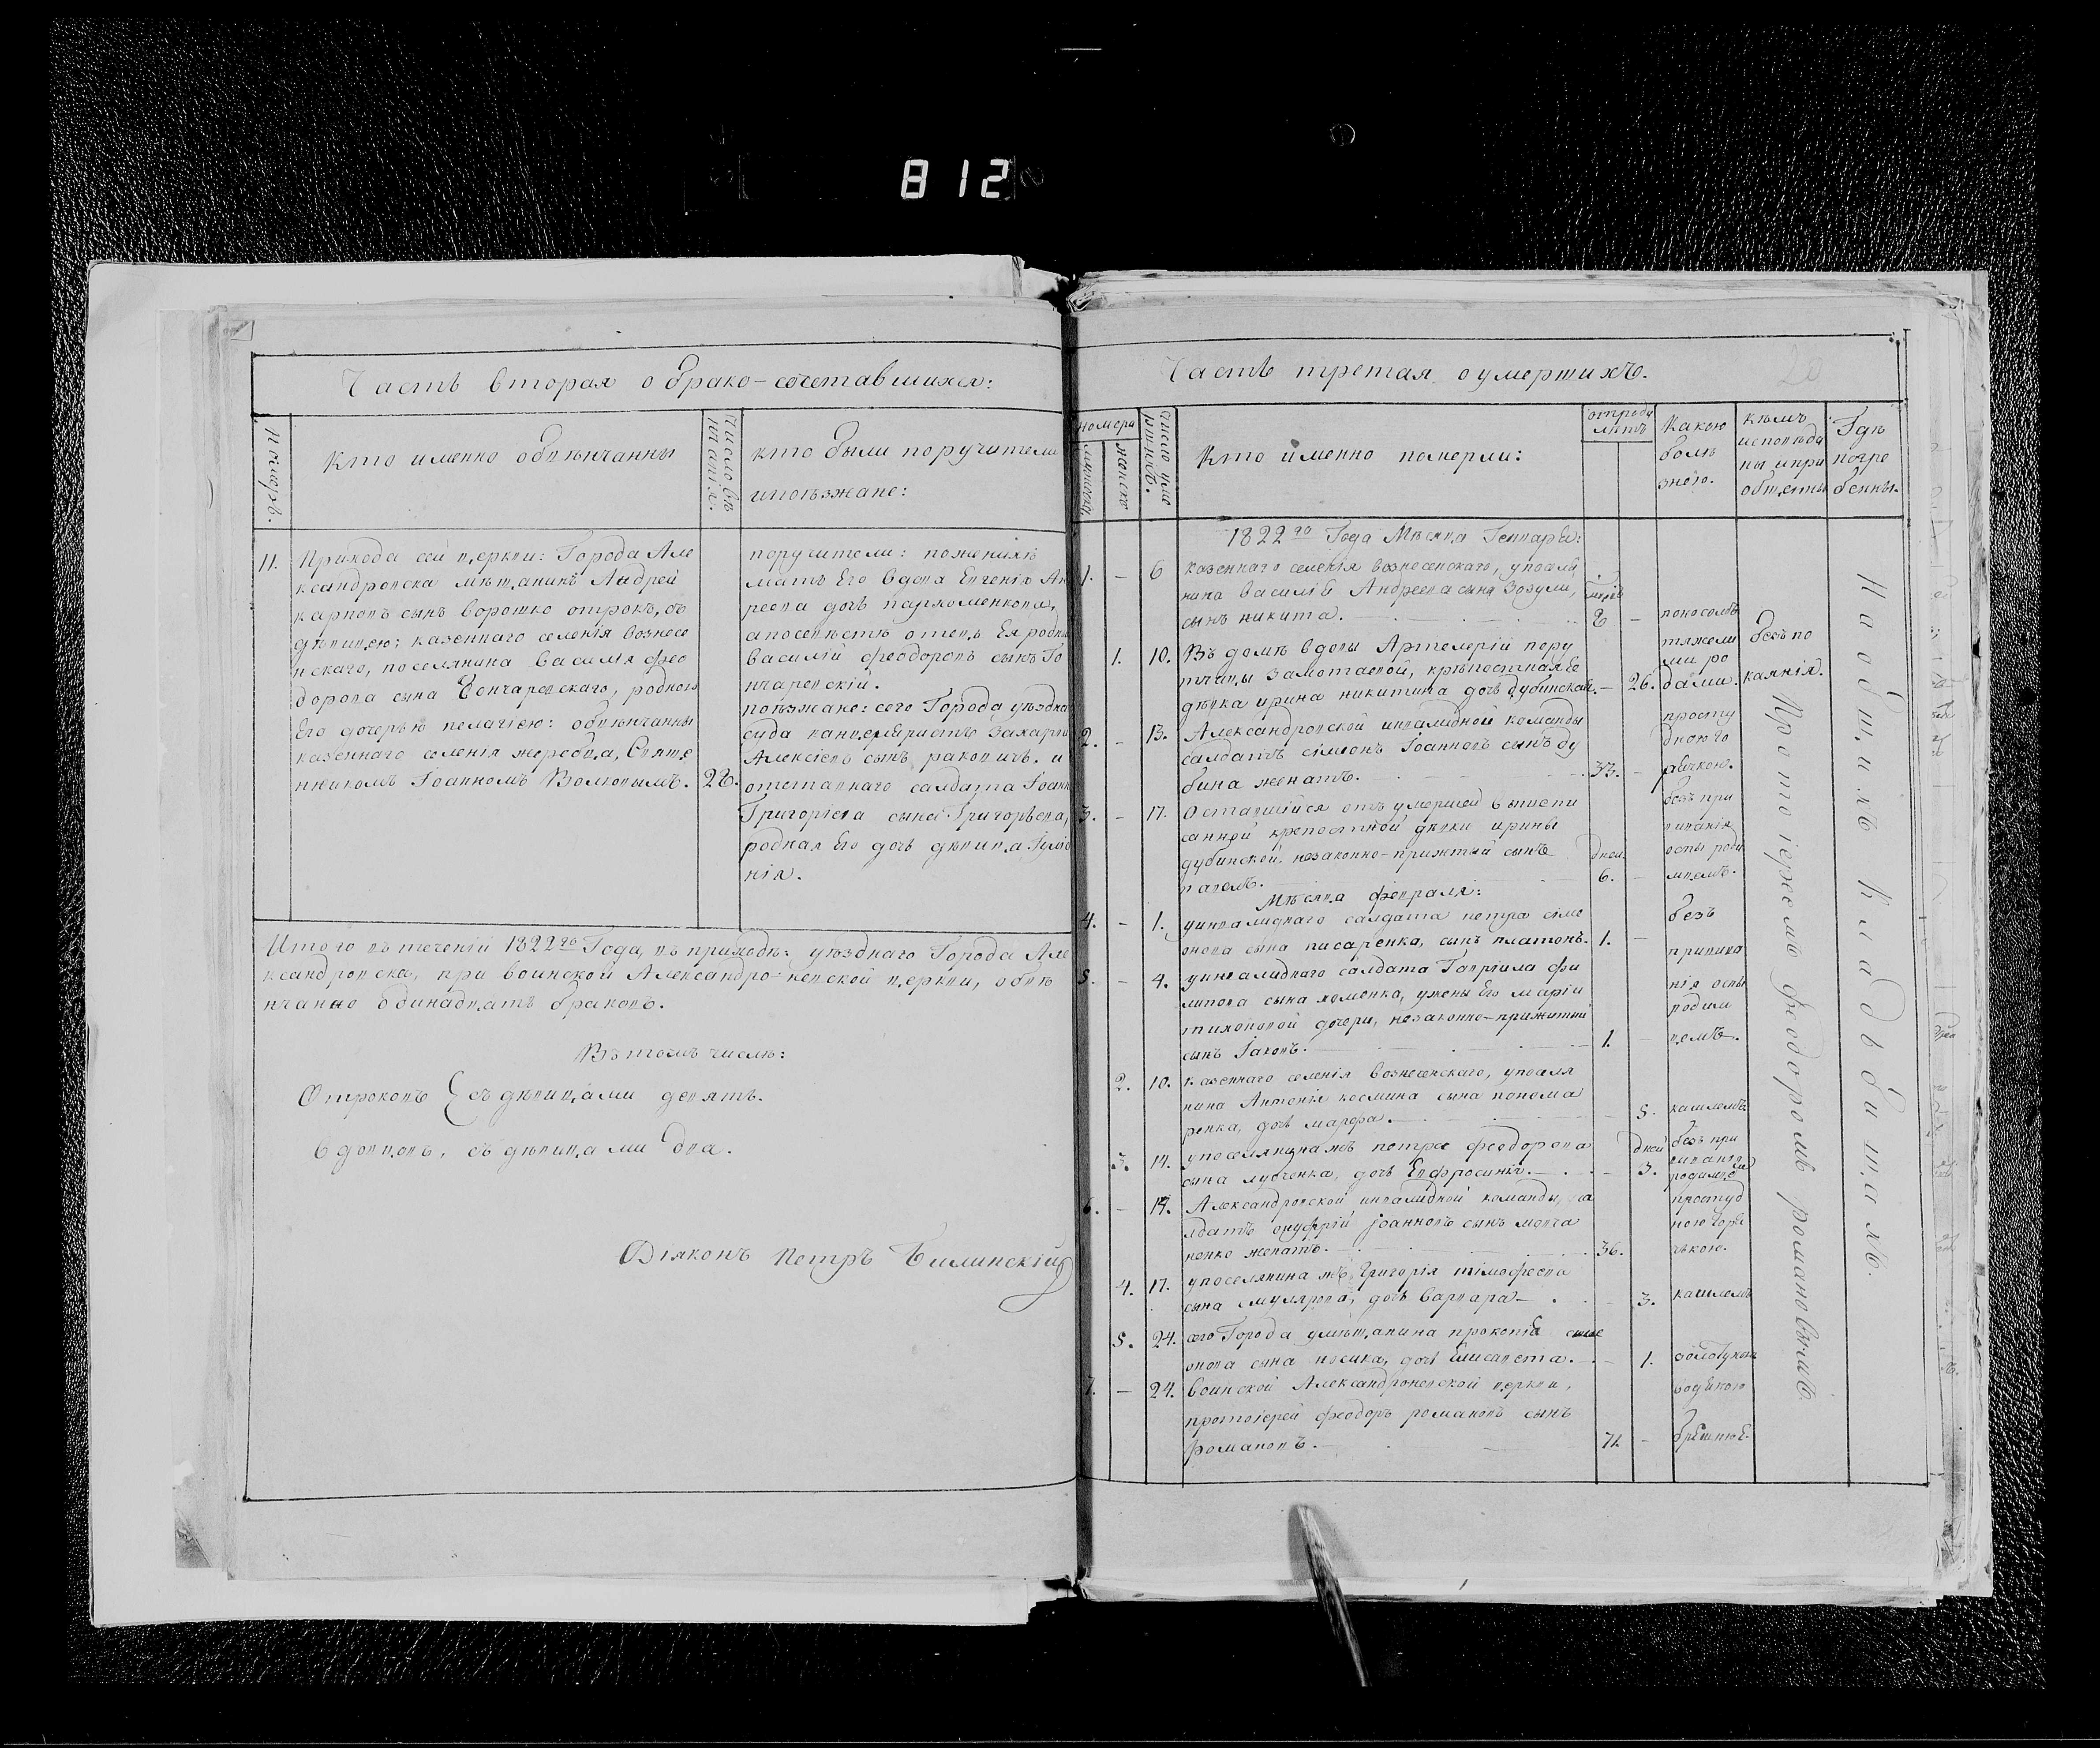 812
Часть вторая о брако-сочетавшихся:
номеръ.
Кто именно обвѣнчанны
число вѣнчанія.
кто были поручители
ипоѣзжане:
11.
Прихода сей церкви: Города Але
ксандровска мѣщанинъ Андрей
карповъ сынъ ворошко отрокъ, съ
дѣвицею; казеннаго селенія вознесе
нскаго, поселянина василія фео
дорова сына Гончаревскаго, родною
Его дочерью пелагіею: обвѣнчанны
казеннаго селенія жеребца, Священ
нникомъ Іоанномъ Волковымъ.
поручители: поженихѣ
мать Его вдова Евгенія Ан
реева дочь пархоменкова,
апоневѣстѣ отецъ Ея родны
василій феодоровъ сынъ Го
нчаревскій.
поѣзжане: сего Города уѣздна
суда канцеляристъ Захарій
Алексіевъ сынъ раковичъ. и
отставнаго салдата Іоанн
Григоріева сына Григорьева,
родная Его дочь дѣвица Іулі
нія.
Итого въ теченіи 1822го Года, въ приходѣ: уѣзднаго Города Але
ксандровска, при воинской Александро-невской церкви, обвѣ
нчанно одинадцать браковъ.
Въ томъ числѣ:
Отроковъ съ дѣвицами девять.
вдовцовъ, съ дѣвицами два.
Діяконъ Петръ Билинскій
Часть третая о умершихъ.
20
номера
мужеска,
женска
Кто йменно померли:
отроду
лѣтъ
Какою
болѣ
знею.
кѣмъ
исповѣда
ны ипри
общены
Гдѣ
погре
бенны.
1822го Года Мѣсяца Генваря:
1. – 6 казеннаго селенія вознесенскаго, упосел
нина василія Андреева сына Зозули,
сынъ никита.
поносомъ
1. 10. Въ домѣ вдовы Артелерій пору
тчицы Замотаевой, крѣпостная Ее
дѣвка ирина никитина дочь дубинская. – 26.
тяжели
ми ро
дами.
безъ по
каянія.
2. – 13. Александровской инвалидной команды
салдатъ сімеонъ Іоанновъ сынъ ду
бина женатъ.
просту
дною го
рячкою.
3. – 17. Оставшійся отъ умершей вышепи
санной крепостной дѣвки ирины
дубинской, незаконно-прижтый сынъ
павелъ.
дней
6.
безъ при
виванія
оспы роди
мцемъ.
Мѣсяца февраля:
4. – 1. уинвалиднаго салдата петра сіме
онова сына писаренка, сынъ платонъ. 1. –
безъ
привива
5. – 4. уинвалиднаго салдата Гавріила фи
липова сына хоменка, ужены Его маріи
тихоновой дочери, незаконно-прижитый
сынъ Іаковъ. 1. –
нія оспы
родим
цемъ.
2. 10. казеннаго селенія вознесенскаго, упосел
нина Антонія космина сына понома
ренка, дочь марфа. – 5. кашлемъ
3. 14. упоселянина жъ петра феодорова
сына лубченка, дочь Евфросинія.
дней
3.
безъ при
виванія
родимцемъ
6. – 14. Александровской инвалидной команды, са
лдатъ онуфрій іоанновъ сынъ мовча
ненко женатъ. 36.
простуд
ною горя
чкою.
4. 17. упоселянина жъ Григорія тімофеева
сына смулярова, дочь варвара – 3. кашлемъ
5. 24. сего Города умѣщанина прокопія симе
онова сына носика, дочь Елисавета. – 1. золотухою
7. – 24. воинской Александроневской церкви,
протоіерей феодоръ романовъ сынъ
романовъ. 71 –
водяною
Протоіереемъ феодоромъ романовымъ.
На общихъ кладьбищахъ.